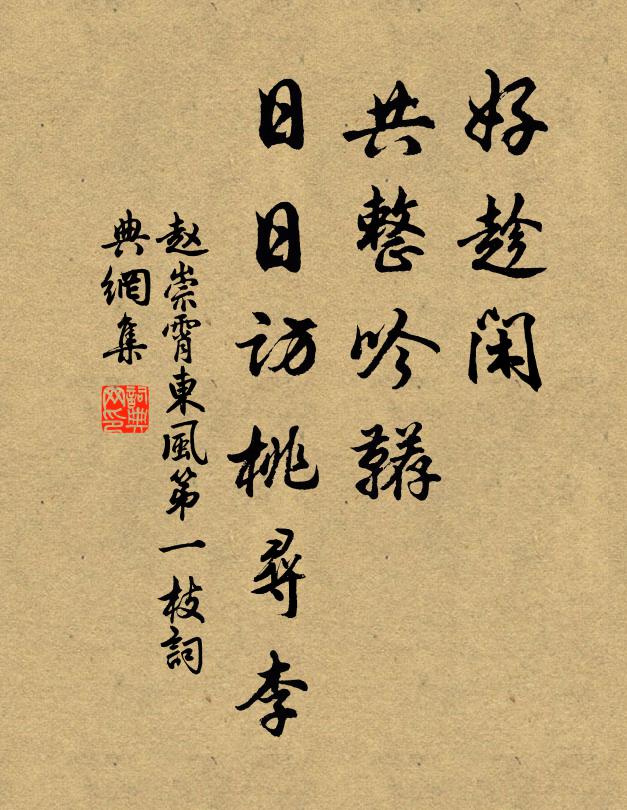 好趁閑
共整吟鞯
日日訪桃尋李
赵崇霄東風第一枝詞
典網集
詞典
网印